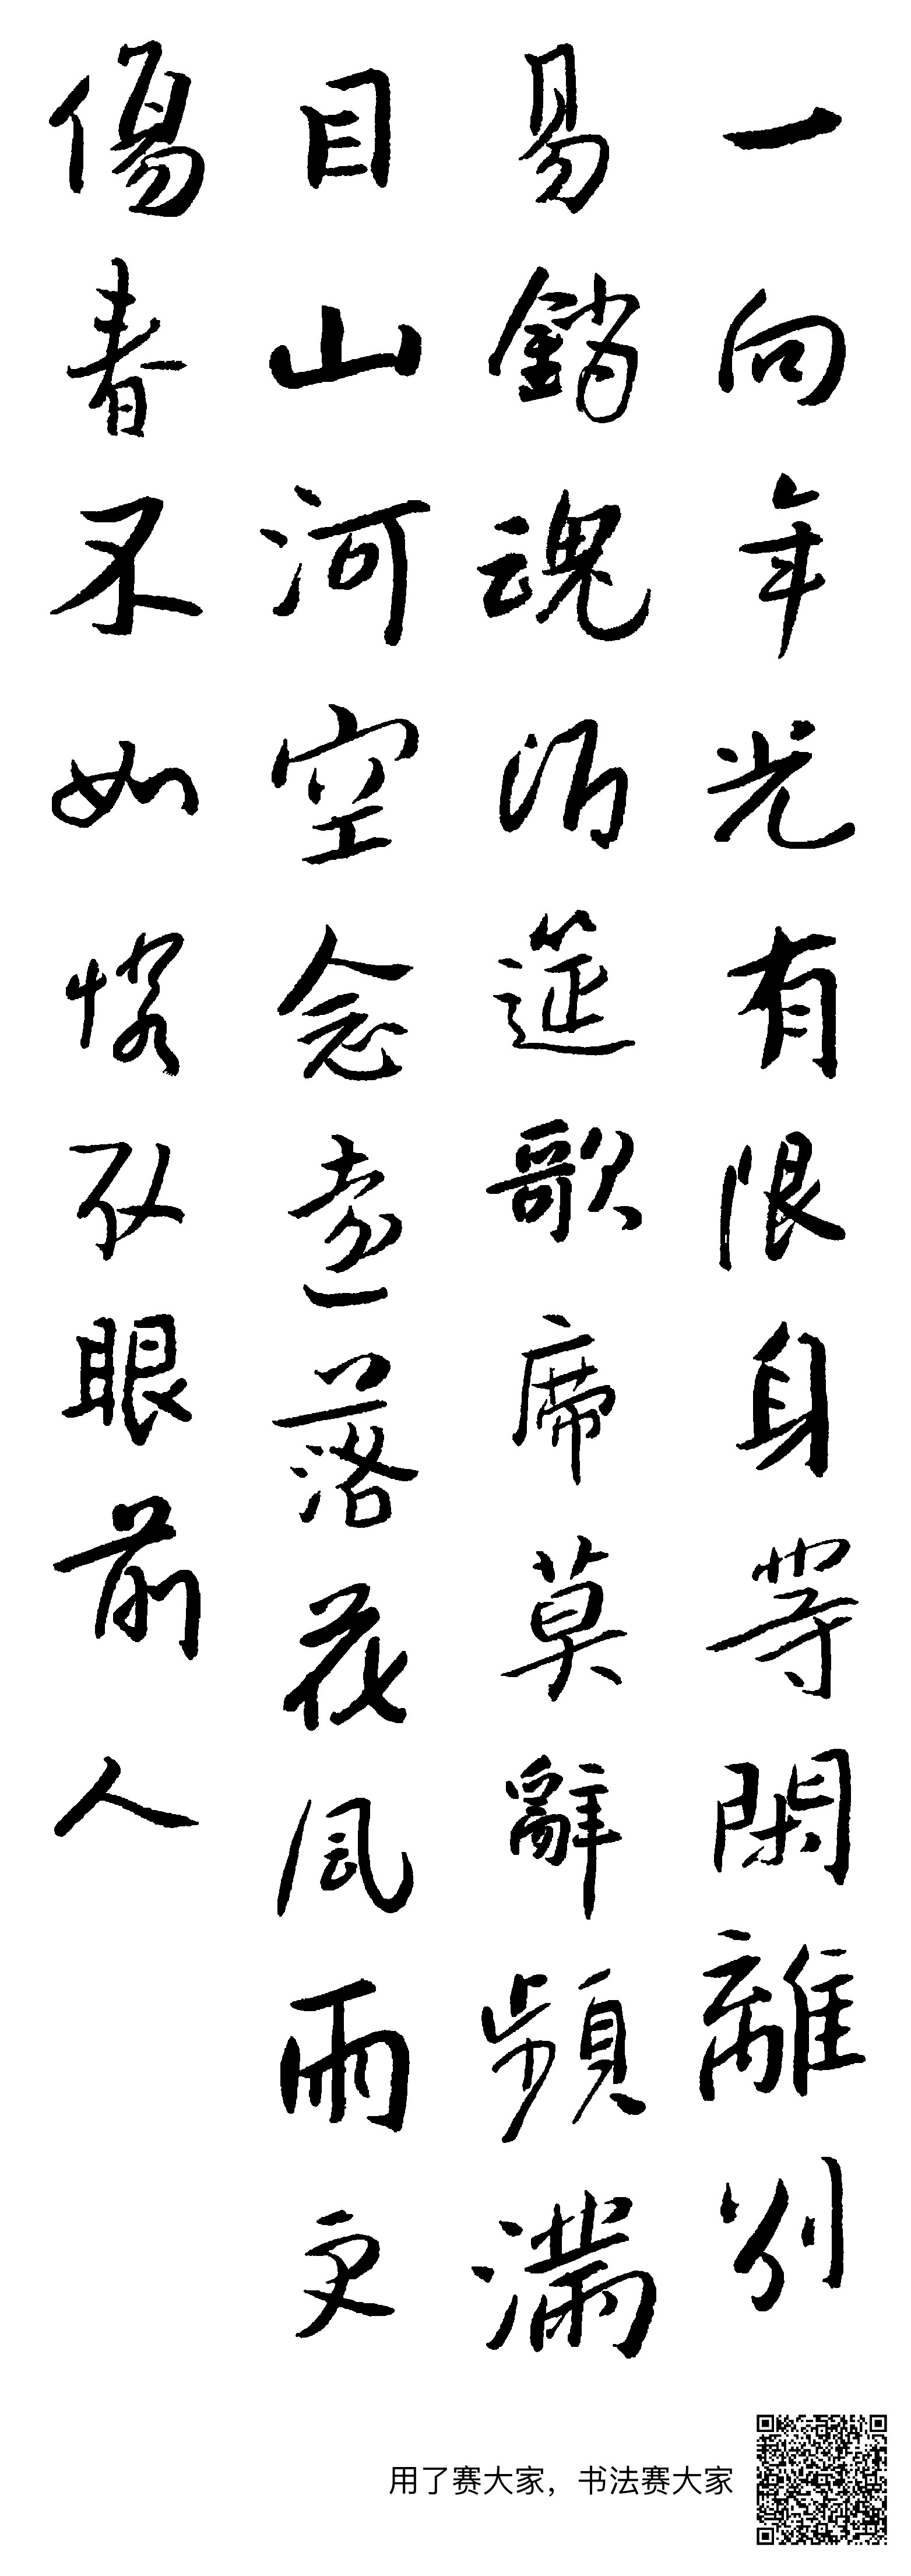 一向年光有限身等閑離別
易銷魂酒筵歌席莫辭頻滿
目山河空念遠落花風雨更
傷春不如憐取眼前人
用了赛大家，书法赛大家